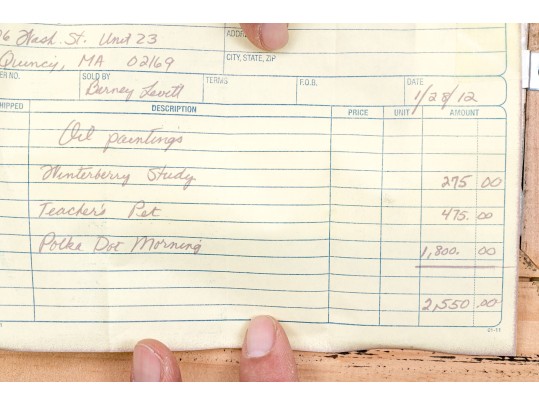 6 Wash. St. Unit 23
ADDRE
Quincy, MA 02169
CITY, STATE, ZIP
ER NO.
SOLD BY
TERMS
F.O.B.
DATE
Barney Levitt
1/28/12
HIPPED
DESCRIPTION
PRICE
UNIT
AMOUNT
Oil paintings
Winterberry Study 275 00
Teacher's Pet 475. 00
Polka Dot Morning 1,800. 00
2,550.00